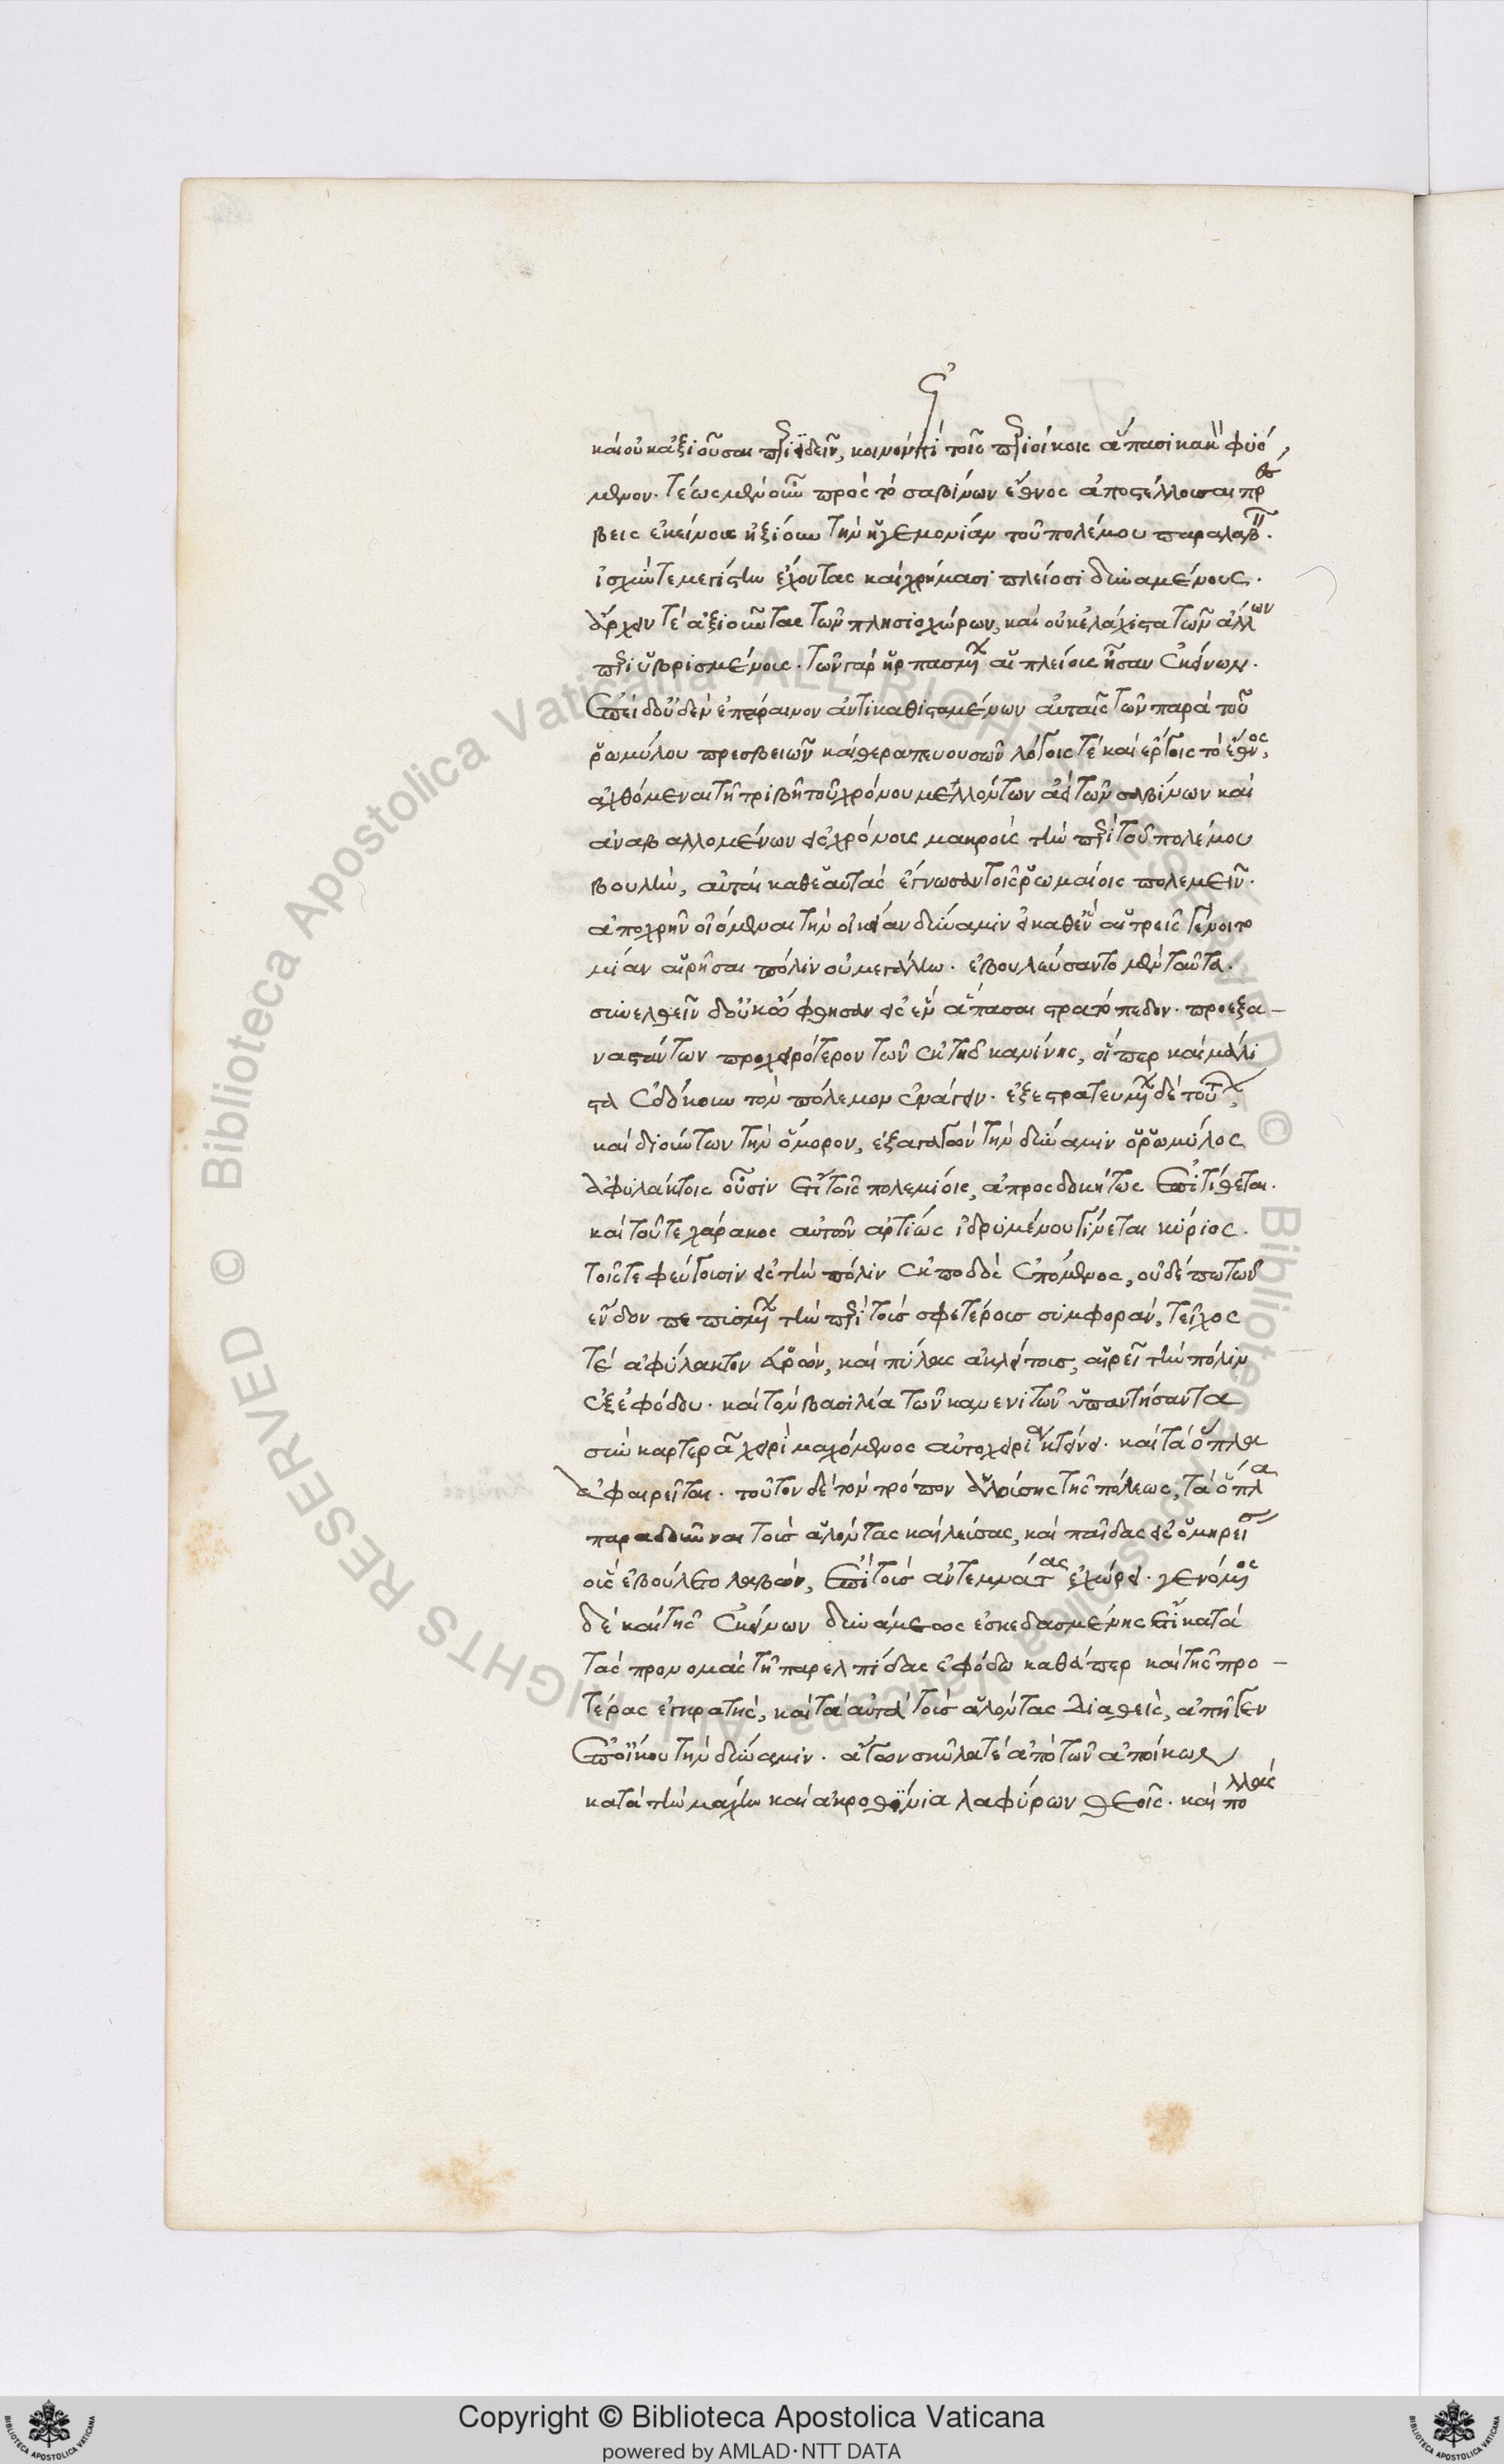 καὶ οὐκ ἀξιοῦσαι περιϊδεῖν, κοινόν τι τοῖς περιοίκοις ἅπασι κακὸν φυό
μενον. τέως μὲν οὖν πρὸς τὸ σαβίνων ἔθνος ἀποστέλλουσαι πρέσ
βεις ἐκείνους ἠξίουν τὴν ἡγεμονίαν τοῦ πολέμου παραλαβεῖν.
ἰσχύν τε μεγίστην ἔχοντας καὶ χρήμασι πλείοσι δυναμένους.
ἄρχειν τὲ ἀξιοῦντας τῶν πλησιοχώρων, καὶ οὐκ ἐλάχιστα τῶν ἄλλων
περιϋβρισμένοις. τῶν γὰρ ἡρπασμένων αἱ πλείους ἦσαν ἐκείνων.
ἐπεὶ δ' οὐδὲν ἐπέραινον ἀντικαθισταμένων αὐταῖς τῶν παρὰ τοῦ
ῥωμύλου πρεσβειῶν καὶ θεραπευουσῶν λόγοις τὲ καὶ ἔργοις τὸ ἔθνος,
ἀχθόμεναι τῇ τριβῇ τοῦ χρόνου μελλόντων ἀεὶ τῶν σαβίνων καὶ
ἀναβαλλομένων εἰς χρόνους μακροὺς τὴν περὶ τοῦ πολέμου
βουλὴν, αὐταὶ καθ' ἑαυτὰς ἔγνωσαν τοῖς ῥωμαίοις πολεμεῖν.
ἀποχρῆν οἰόμεναι τὴν οἰκείαν δύναμιν εἰ καθ' ἓν αἱ τρεῖς γένοιντο
μίαν αἱρῆσαι πόλιν οὐ μεγάλην. ἐβουλεύσαντο μὲν ταῦτα.
συνελθεῖν δ' οὐκ ἔφθησαν εἰς ἓν ἅπασαι στρατόπεδον. προεξα-
ναστάντων προχειρότερον τῶν ἐκ τῆς καινίνης, οἵπερ καὶ μάλι
στα ἐδόκουν τὸν πόλεμον ἐνάγειν. ἐξεστρατευμένων δὲ τούτων,
καὶ δῃούντων τὴν ὅμορον, ἐξαγαγὼν τὴν δύναμιν ὁ ῥωμύλος
ἀφυλάκτοις οὖσιν ἔτι τοῖς πολεμίοις, ἀπροσδοκήτως ἐπιτίθεται.
καὶ τοῦ τε χάρακος αὐτῶν ἀρτίως ἱδρυμένου γίνεται κύριος.
τοῖς τε φεύγουσιν εἰς τὴν πόλιν ἐκ ποδὸς ἑπόμενος, οὐδέπω τῶν
ἔνδον πεπυσμένων τὴν περὶ τοὺς σφετέρους συμφορὰν, τεῖχος
τὲ ἀφύλακτον εὑρὼν, καὶ πύλας ἀκλείστους, αἱρεῖ τὴν πόλιν
ἐξ ἐφόδου. καὶ τὸν βασιλέα τῶν καινενιτῶν ὑπαντήσαντα
σὺν καρτερᾷ χειρὶ μαχόμενος αὐτοχειρὶ κτείνει. καὶ τὰ ὅπλα
ἀφαιρεῖται. τοῦτον δὲ τὸν τρόπον ἁλούσης τῆς πόλεως, τὰ ὅπλα
παραδοῦναι τοὺς ἁλόντας κελεύσας, καὶ παῖδας εἰς ὁμηρείαν
οὓς ἐβούλετο λαβὼν, ἐπὶ τοὺς ἀντεμνάτας ἐχώρει. γενόμενος
δὲ καὶ τῆς ἐκείνων δυνάμεως ἐσκεδασμένης ἔτι κατὰ
τὰς προνομὰς τῇ παρ' ἐλπίδας ἐφόδῳ καθάπερ καὶ τῆς προ-
τέρας ἐγκρατὴς, καὶ τὰ αὐτὰ τοὺς ἁλόντας διαθεὶς, ἀπῆγεν
ἐπ' οἴκου τὴν δύναμιν. ἄγων σκῦλά τε ἀπὸ τῶν
κατὰ τὴν μάχην καὶ ἀκροθίνια λαφύρων θεοῖς. καὶ πολλὰς